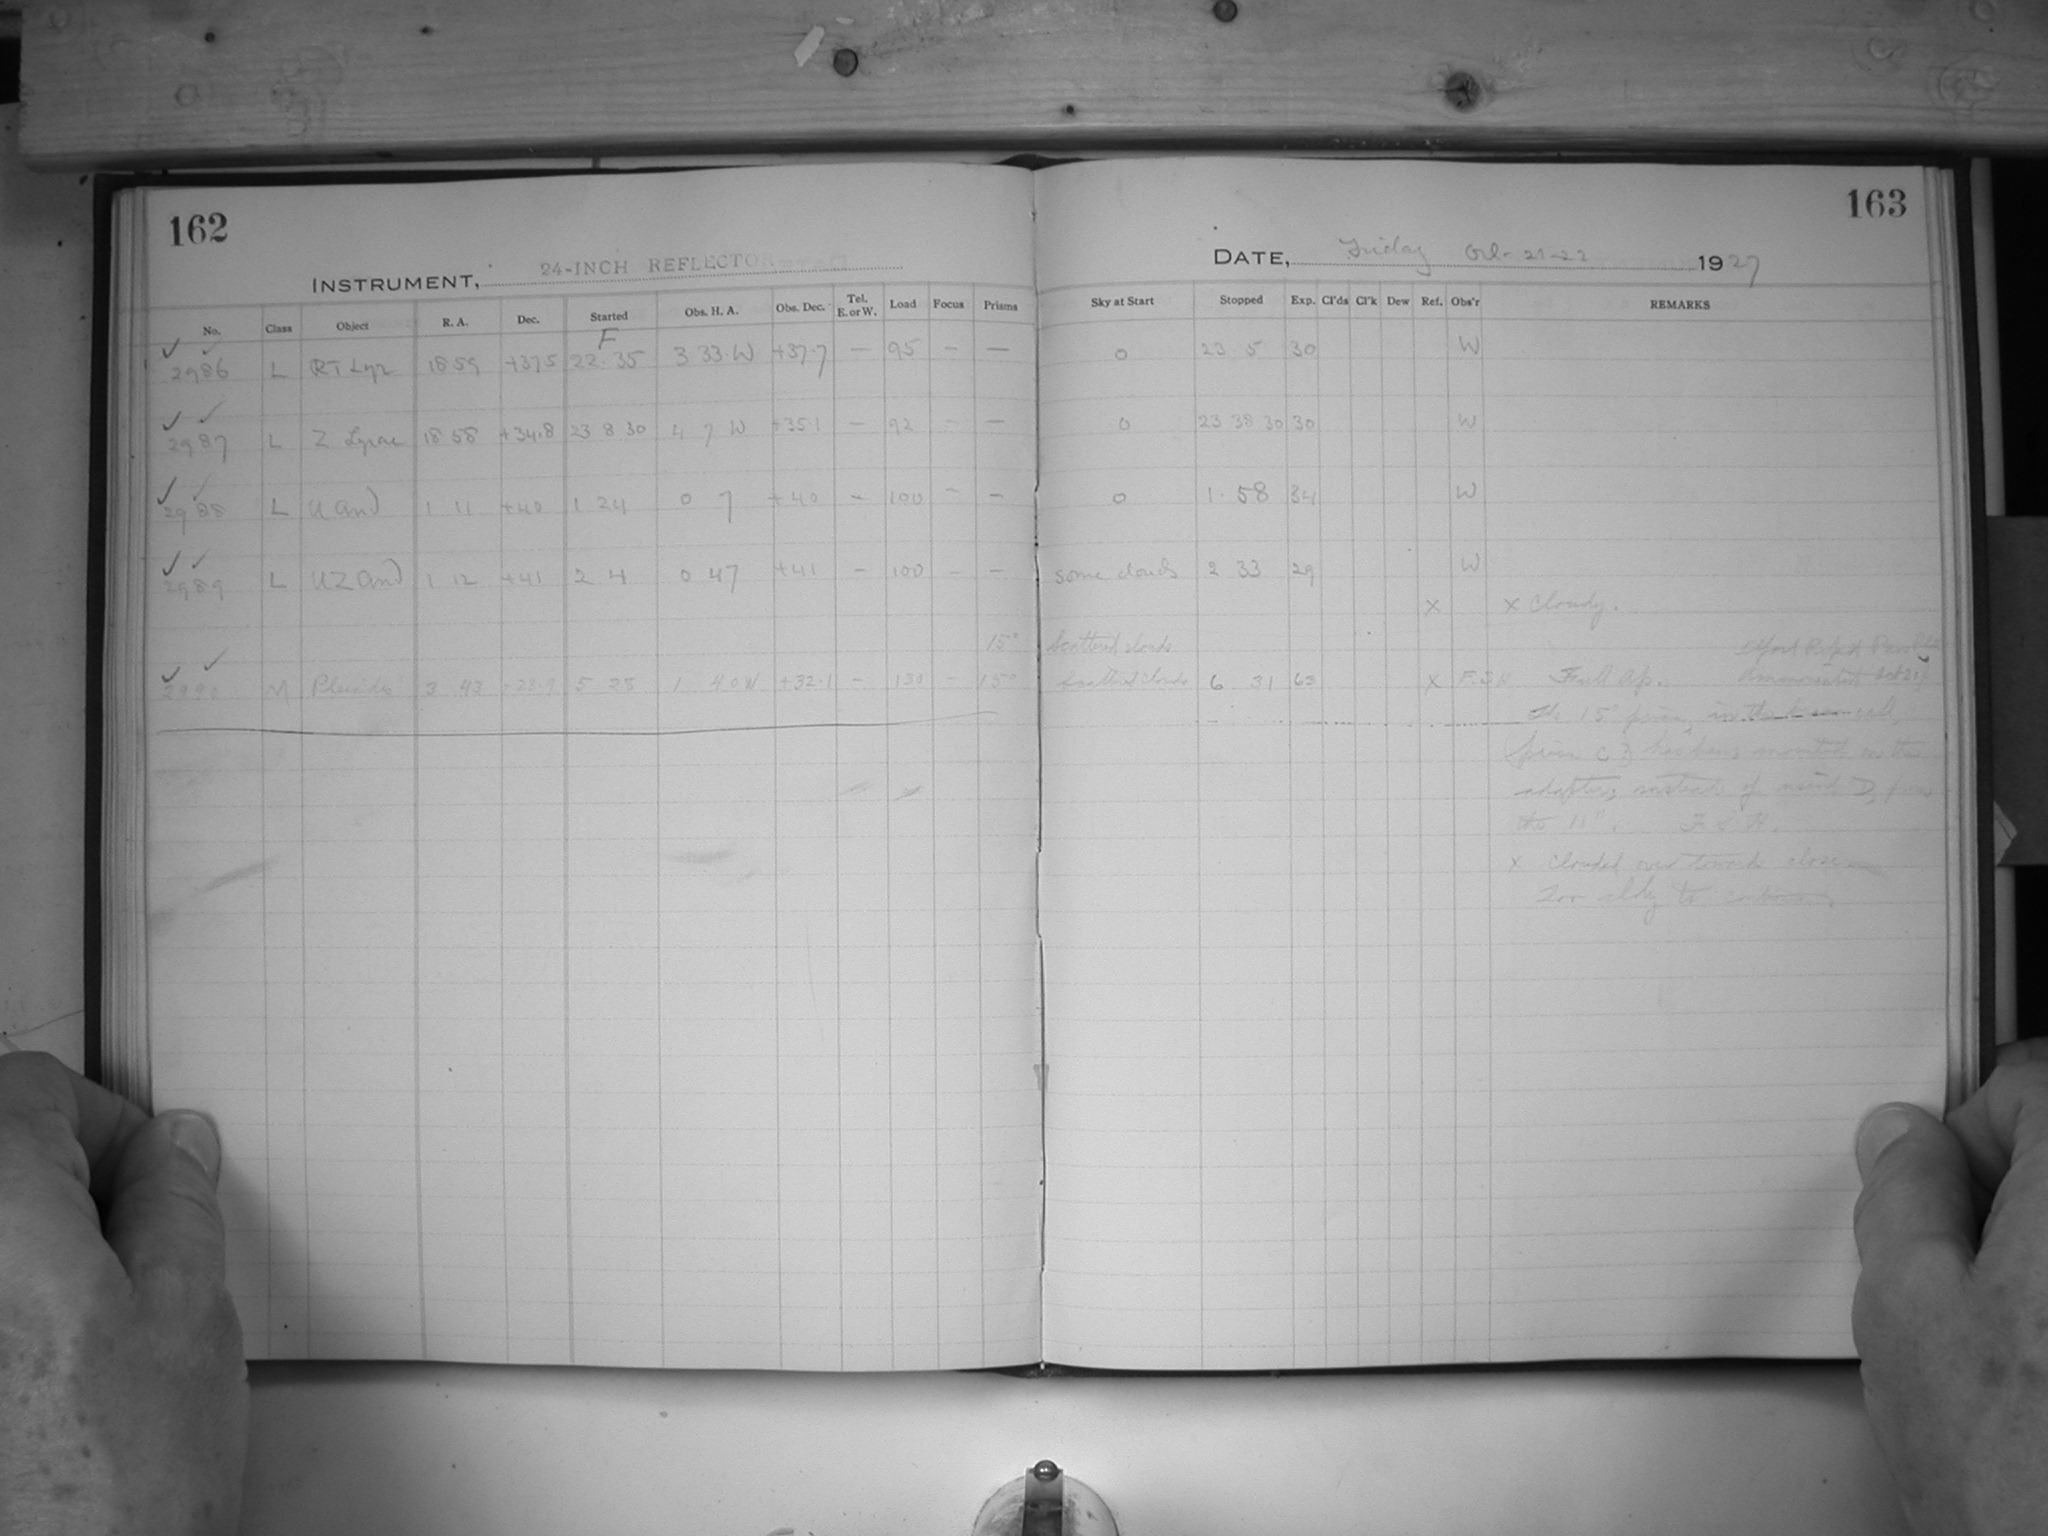 162
INSTRUMENT, 24-INCH REFLECTOR
No. Class Object R. A. Dec. Started Obs. H. A. Obs. Dec. Tel. E. or W. Load Focus Prisms
F
2986 L RT Lyr 18 59 +37.5 22. 35 3 33. W +37.7 — 95 — —
2987 L Z Lyrae 18 58 +34.8 23 8 30 4 7 W +35.1 — 92 — —
2988 L U And 1 11 +40 1 24 0 7 +40 — 100 — —
2989 L UZ And 1 12 +41 2 4 0 47 +41 — 100 — —
15°
2990 M Pleiades 3 43 5 28 1 40 W +32.1 — 130 — 15°
163
DATE, Friday Oct- 21-22 1927
Sky at Start Stopped Exp. Cl'ds Cl'k Dew Ref. Obs'r REMARKS
0 23 5 30 W
0 23 38 30 30 W
0 1. 58 34 W
some clouds 2 33 29 W
x x Cloudy.
Scattered clouds
Scattered clouds 6 31 63 x F.S.H. Full Ap.
The 15° prism, in the
has been mounted on the
adapter, instead of
the 11". F. S. H.
x Clouded over towards close
Too cldy to continue.